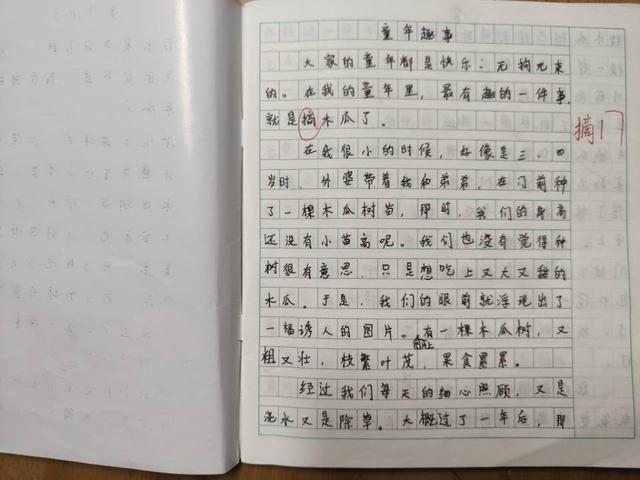 童年趣事
大家的童年都是快乐；无拘无束
的。在我的童年里，最有趣的一件事，
就是摘木瓜了。
摘
在我很小的时候，好像是三、四
岁时，外婆带着我和弟弟，在门前种
了一棵木瓜树苗，那时，我们的身高
还没有小苗高呢。我们也没有觉得种
树很有意思，只是想吃上又大又甜的
木瓜。于是，我们的眼前就浮现出了
一福诱人的图片。有一棵木瓜树，又
图上
粗又壮，枝繁叶茂，果食累累。
经过我们每天的细心照顾，又是
浇水又是除草。大概过了一年后，那